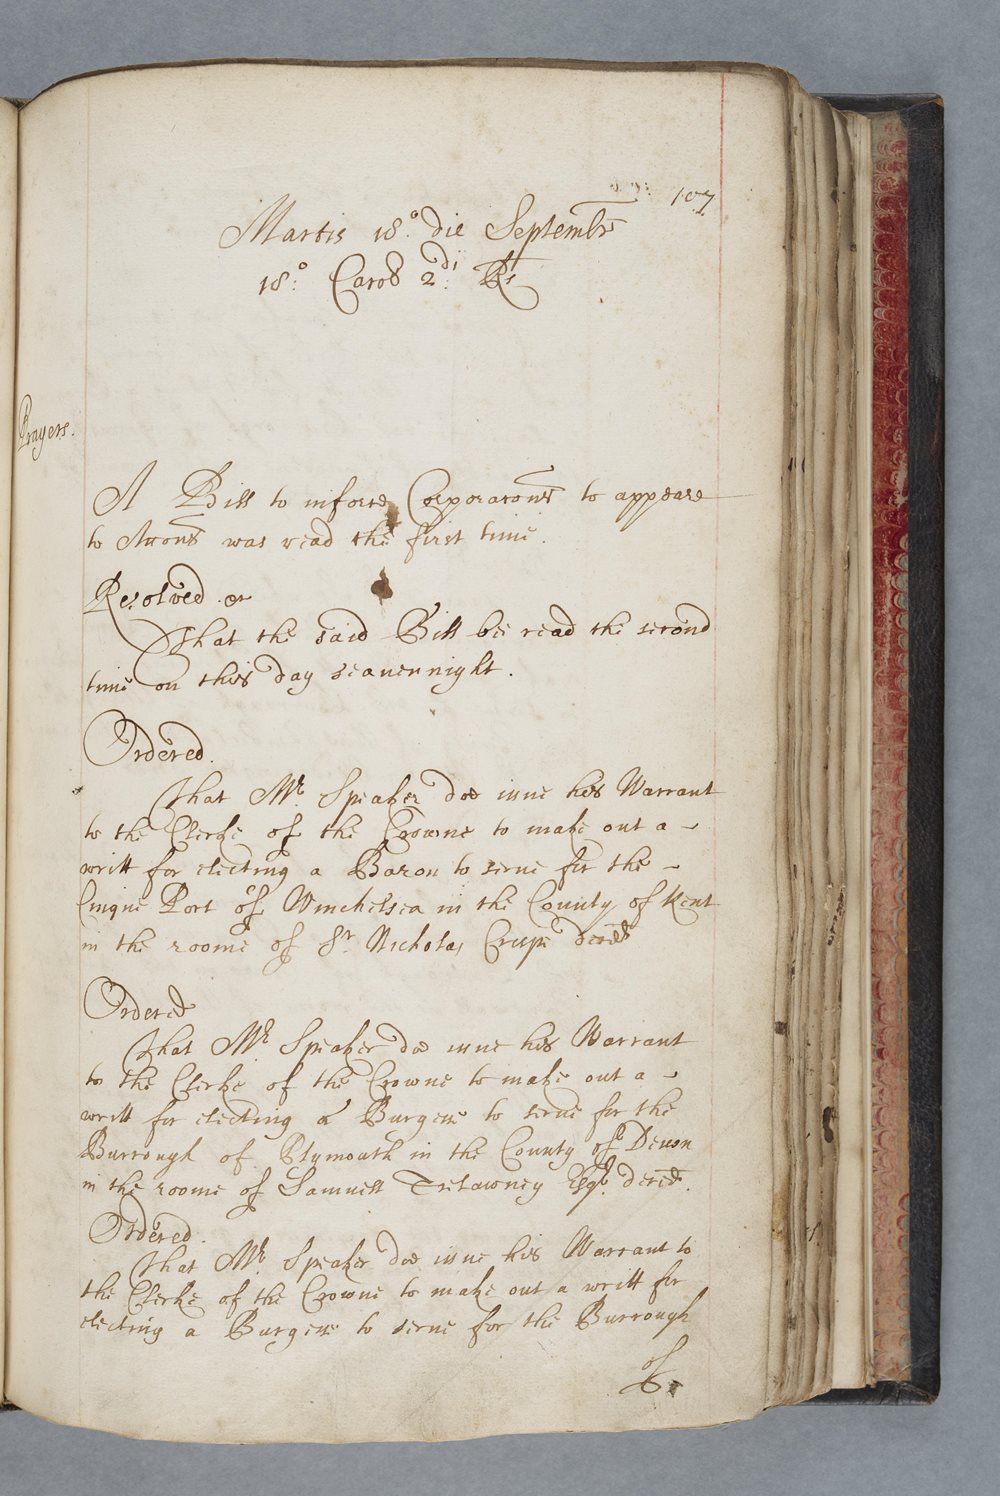 107
Martis 18.º die Septembr
18.º Carol 2.di Rs
Prayers.
A Bill to inforce Corporacons to appeare
to Accons was read the first time.
Resolved &c
That the said Bill bee read the second
time on this day seauennight.
Ordered.
That Mr. Speaker doe issue his Warrant
to the Clerke of the Crowne to make out a
writt for electing a Baron to serue for the
Cinque Port of Winchelsea in the County of Kent
in the roome of Sr. Nicholas Crispe deced
Ordered
That Mr. Speaker doe issue his Warrant
to the Clerke of the Crowne to make out a
writt for electing a Burgess to serue for the
Burrough of Plymouth in the County of Deuon
in the roome of Samuell Trelawney Esqr. deced.
Ordered.
That Mr. Speaker doe issue his Warrant to
the Clerke of the Crowne to make out a writt for
electing a Burgess to serue for the Burrough
of